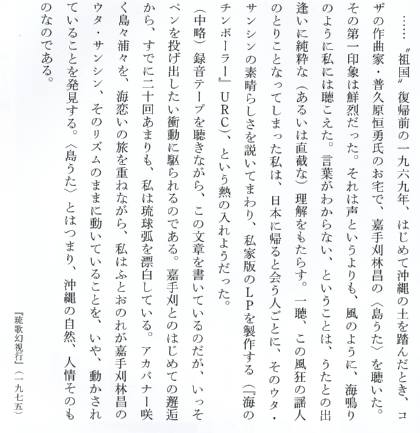 ……〝祖国〟復帰前の一九六九年、はじめて沖縄の土を踏んだとき、コ
ザの作曲家・普久原恒勇氏のお宅で、嘉手刈林昌の〈島うた〉を聴いた。
その第一印象は鮮烈だった。それは声というよりも、風のように、海鳴り
のように私には聴こえた。言葉がわからない、ということは、うたとの出
逢いに純粋な（あるいは直截な）理解をもたらす。一聴、この風狂の謡人
のとりことなってしまった私は、日本に帰ると会う人ごとに、そのウタ・
サンシンの素晴らしさを説いてまわり、私家版のLPを製作する（『海の
チンボーラー』URC）、という熱の入れようだった。
（中略）録音テープを聴きながら、この文章を書いているのだが、いっそ
ペンを投げ出したい衝動に駆られるのである。嘉手刈とのはじめての邂逅
から、すでに二十回あまりも、私は琉球弧を漂泊している。アカバナー咲
く島々浦々を、海恋いの旅を重ねながら、私はふとおのれが嘉手刈林昌の
ウタ・サンシン、そのリズムのままに動いていることを、いや、動かされ
ていることを発見する。〈島うた〉とはつまり、沖縄の自然、人情そのも
のなのである。
『琉歌幻視行』（一九七五）